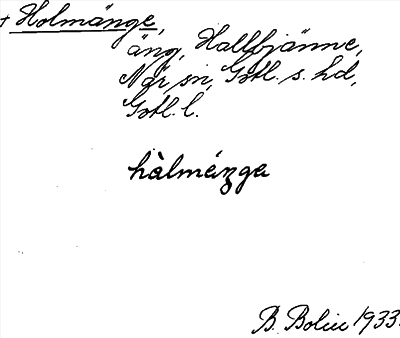 + Holmänge,
äng, Hallbjänne,
När sn, Gotl. s. hd,
Gotl. l.
hàlmánga
B. Bolin 1933.